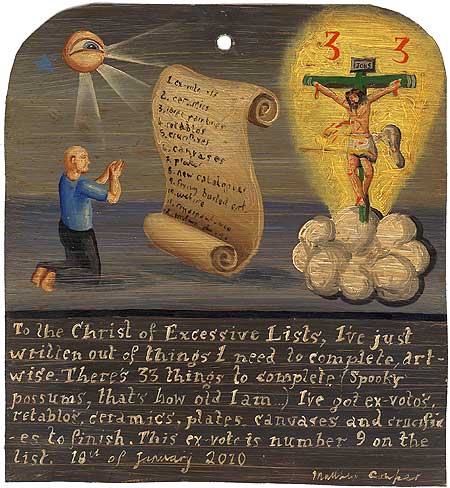 3 3
1. ex-voto
2. ceramics
3.
4. retablos
5. crucifixes
6. canvases
7. plates
8. new catalogue
9. firing
10.
11.
To the Christ of Excessive Lists, I've just
written out of things I need to complete, art-
wise. There's 33 things to complete (Spooky
possums, that's how old I am...) I've got ex-votos,
retablos, ceramics, plates canvases and crucifix-
es to finish. This ex-voto is number 9 on the
list. 18th of January 2010
Matthew Couper